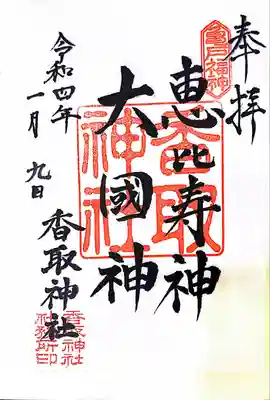 奉拝
亀戸福神
恵比寿神
大國神
香取神社
令和四年
一月九日
香取神社
香取神社
社務所印